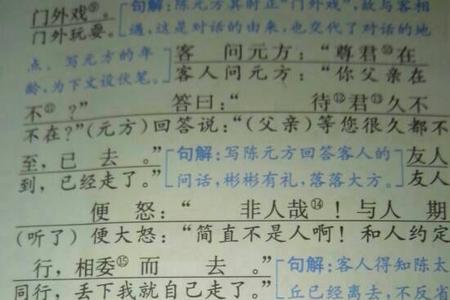 门外戏⑨。[句解：陈元方其时正“门外戏”，故与客相
门外玩耍。遇，这是对话的由来，也交代了对话的地
点、写元方的年 客 问元方：“尊君⑩在
龄，为下文设伏笔。客人问元方：“你父亲在
不⑪？” 答曰：“ 待⑫君⑬久不
不在？”(元方)回答说：“(父亲)等您很久都不
至，已 去。”[句解：写陈元方回答客人的 友人
到，已经走了。”问话，彬彬有礼，落落大方。]友人
便 怒：“ 非人哉⑭！与人 期
(听了)便大怒：“简直不是人啊！和人约定
行，相委⑮而 去。”[句解：客人得知陈太
同行，丢下我就自己走了。”丘已经离去，不反省